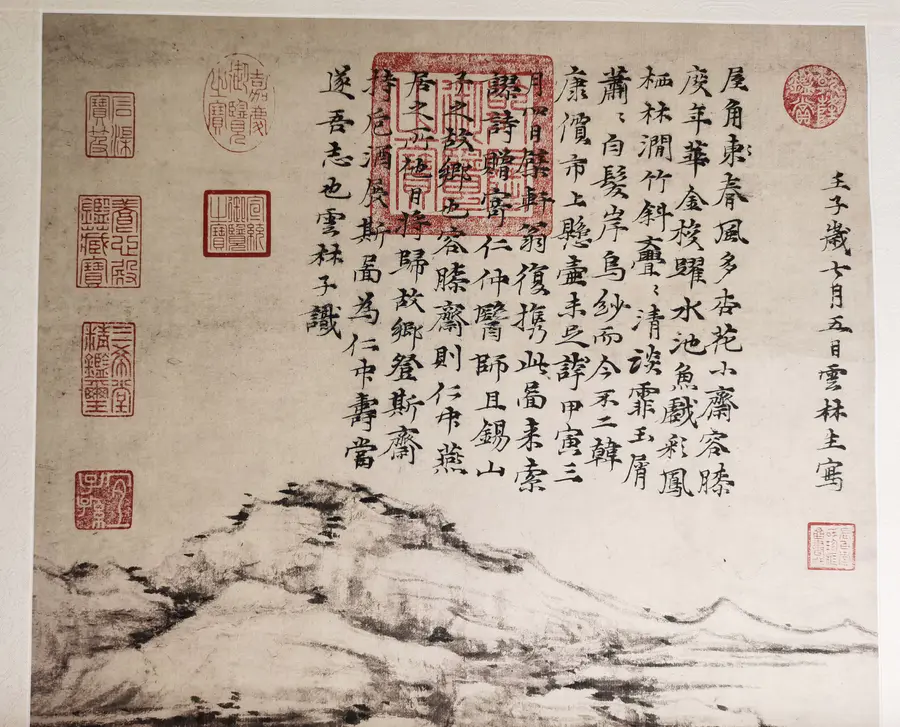 乾隆鑑賞
壬子歲七月五日雲林生寫
屋角東春風多杏花小齋容膝
度年華金梭躍水池魚戲彩鳳
栖林澗竹斜亹〻清談霏玉屑
蕭〻白髮岸烏紗而今不二韓
康價市上懸壺未足誇甲寅三
月四日檗軒翁復攜此圖来索
謬詩贈寄仁仲醫師且錫山
予之故鄉也容膝齋則仁中燕
居之所他日將歸故鄉登斯齋
持巵酒展斯圖為仁中壽當
遂吾志也雲林子識
嘉慶御覽之寶
宣統御覽之寶
石渠寶笈
養心殿鑑藏寶
三希堂精鑑璽
宜子孫